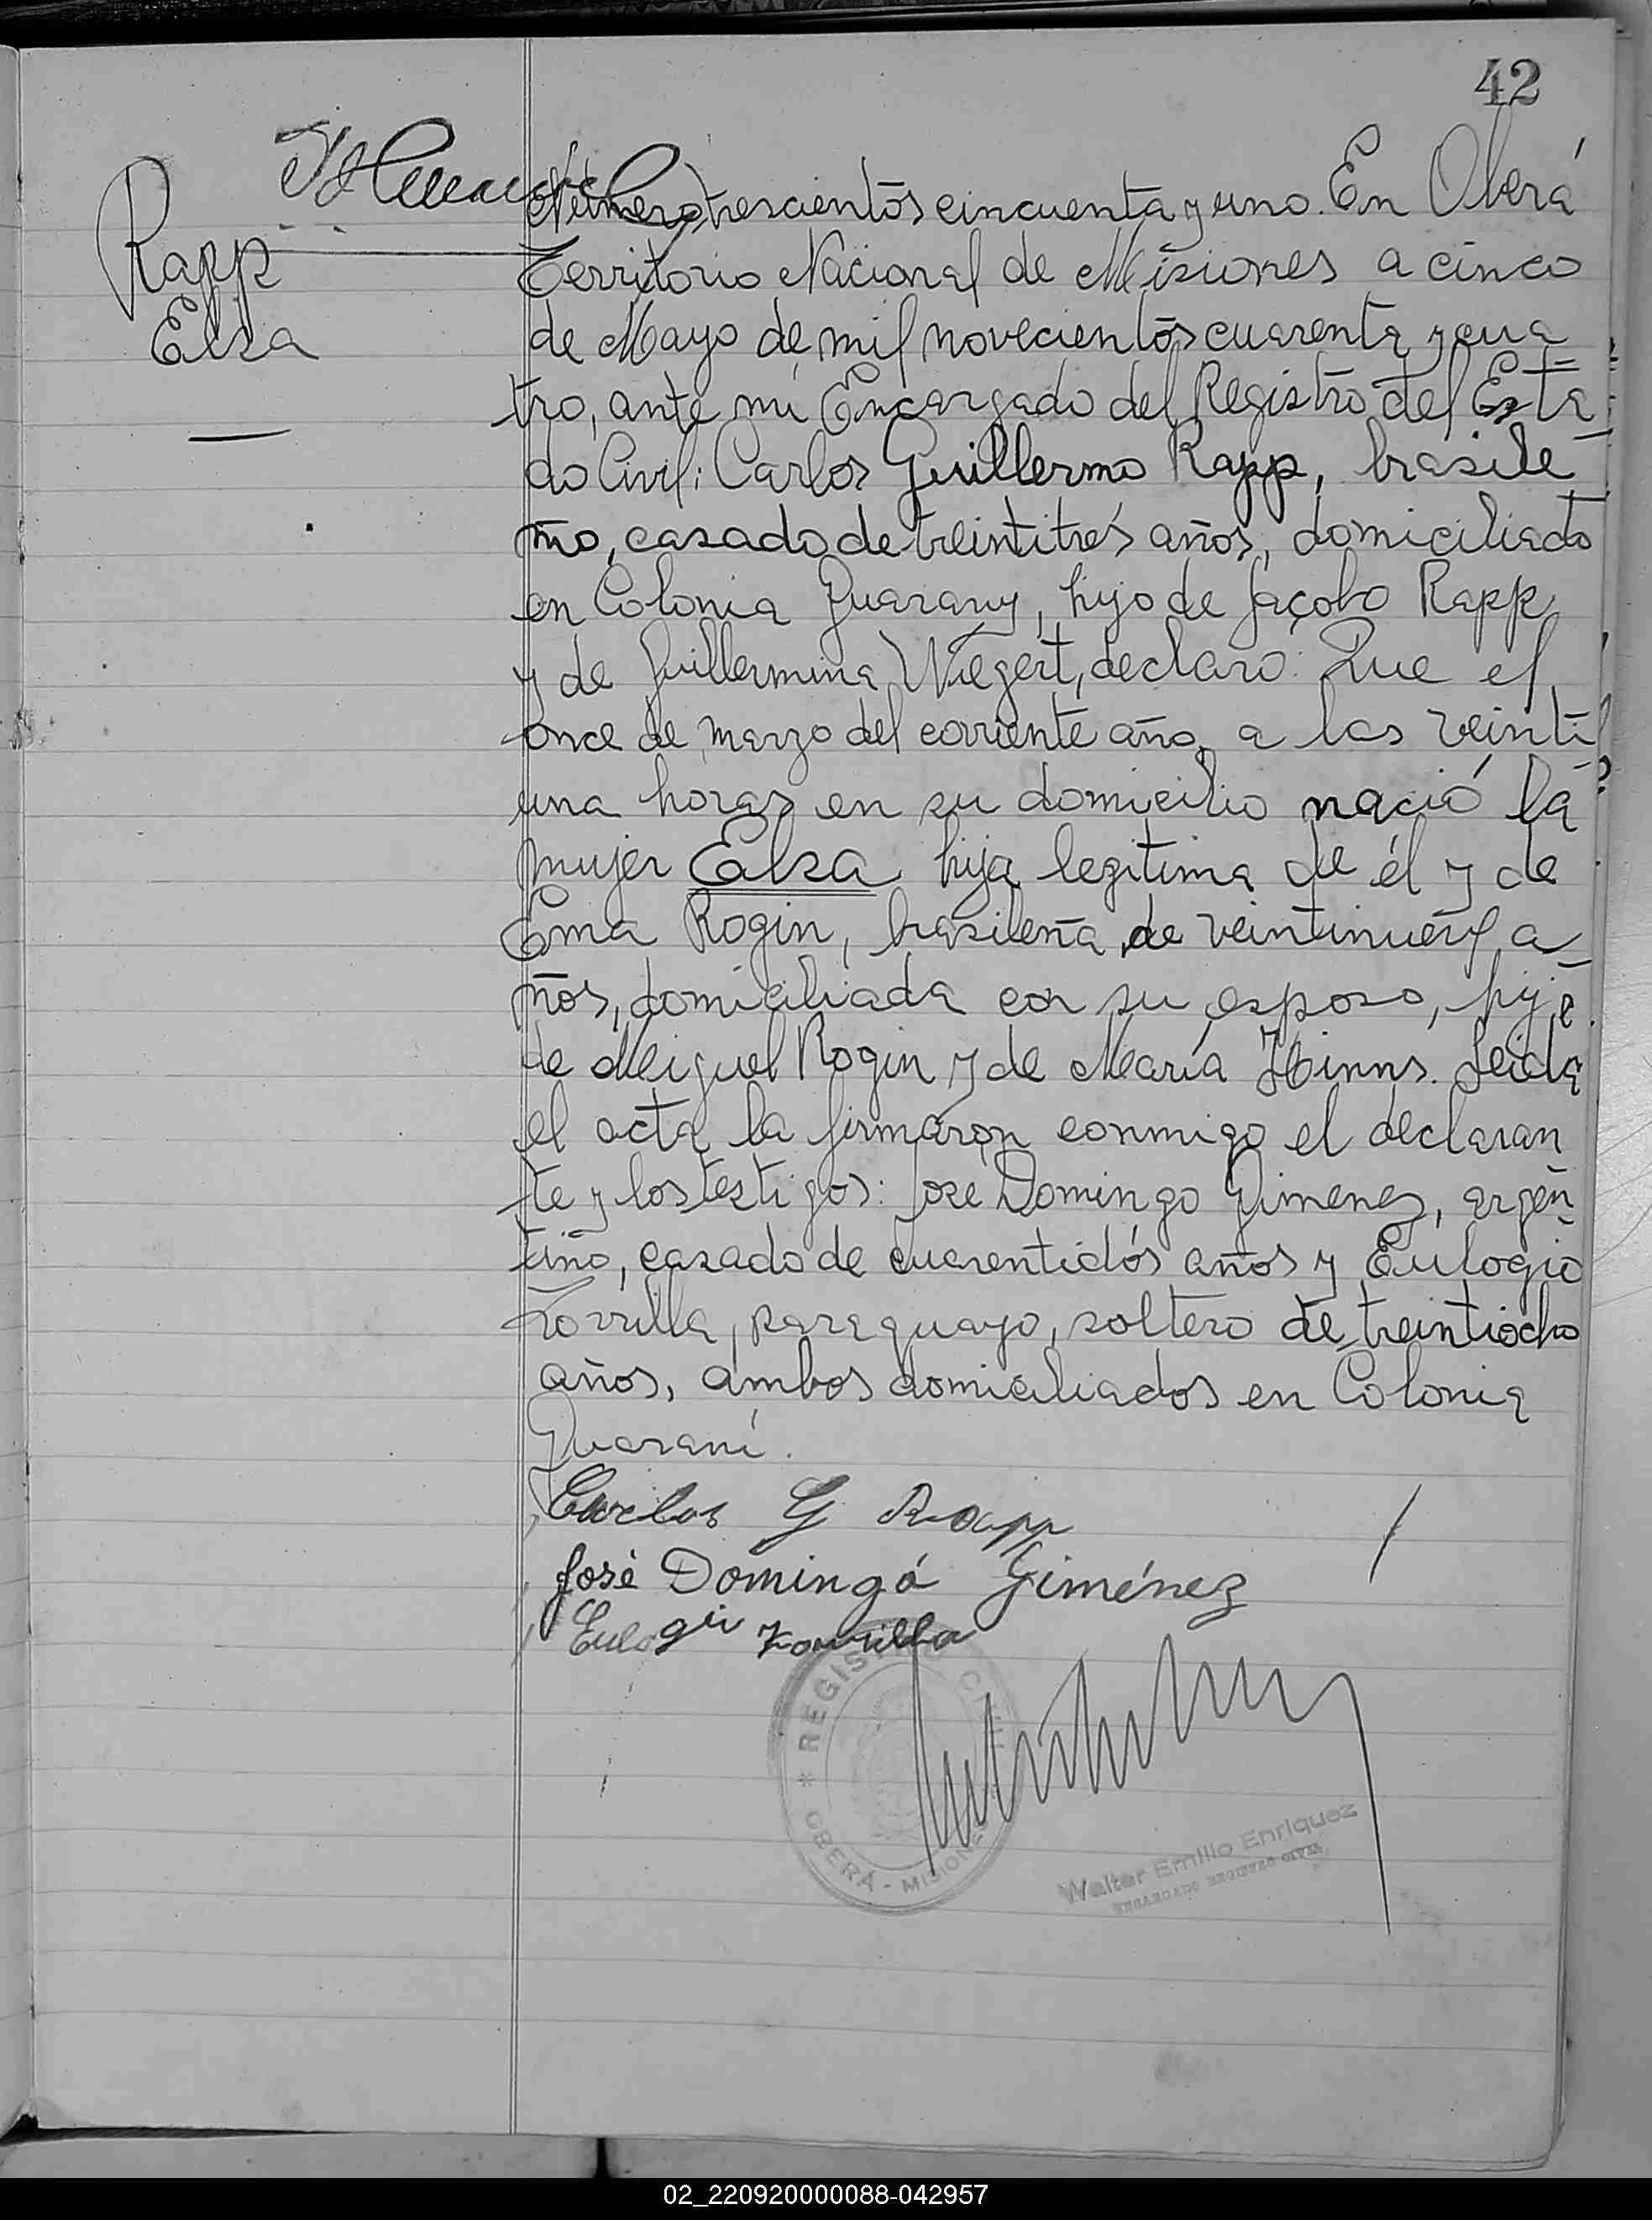 42
Rapp
Elsa
Número trescientos cincuenta y uno. En Oberá
Territorio Nacional de Misiones a cinco
de Mayo de mil novecientos cuarenta y cua
tro, ante mi Encargado del Registro del Esta
do Civil: Carlos Guillermo Rapp, brasile
ño, casado de treintitrés años, domiciliado
en Colonia Guarany, hijo de Jacobo Rapp
y de Guillermina Wiegert, declaró: Que el
once de marzo del corriente año, a las veinti
una horas en su domicilio nació la
mujer Elsa hija legitima de él y de
Ema Rogin, brasileña, de veintinueve a
ños, domiciliada con su esposo, hija
de Miguel Rogin y de María Hinns. Leida
el acta la firmaron conmigo el declaran
te y los testigos: José Domingo Gimenez, argen
tino, casado de cuarentidós años y Eulogio
Zorrilla, paraguayo, soltero de treintiocho
años, ambos domiciliados en Colonia
Guaraní.
Carlos G Rapp
José Domingó Giménez
Eulogio Zorrilla
REGISTRO CIVIL
OBERÁ - MISIONES
Walter Emilio Enriquez
ENCARGADO REGISTRO CIVIL
02_220920000088-042957